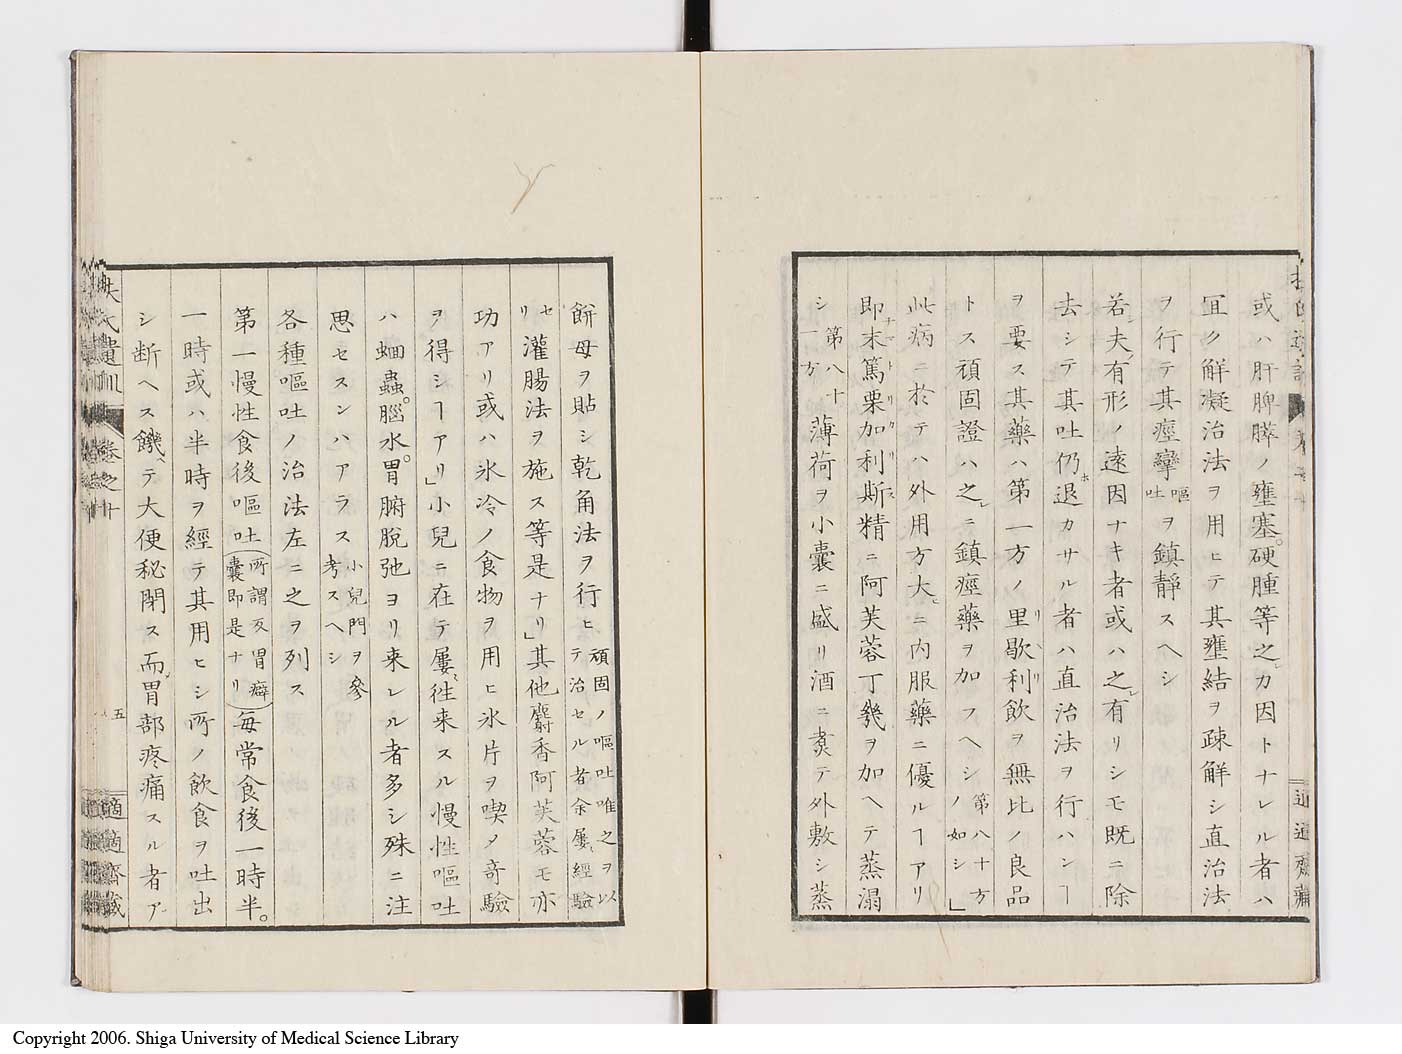 或ハ肝脾膵ノ壅塞。硬腫等之レカ因トナレル者ハ
冝ク解凝治法ヲ用ヒテ其壅結ヲ疎解シ直治法
ヲ行テ其痙攣嘔吐ヲ鎮靜スヘシ
若シ夫レ有形ノ遠因ナキ者或ハ之レ有リシモ既ニ除
去シテ其吐仍ホ退カサル者ハ直治法ヲ行ハンヿ
ヲ要ス其藥ハ第一方ノ里歇利飲ヲ無比ノ良品
トス頑固證ハ之レニ鎮痙藥ヲ加フヘシ第八十方ノ如シ」
此病ニ於テハ外用方大ヒニ内服藥ニ優ルヿアリ
即末篤栗加利斯精ニ阿芙蓉丁幾ヲ加ヘテ蒸溻
シ第八十一方薄荷ヲ小囊ニ盛リ酒ニ煑テ外敷シ蒸
餅母ヲ貼シ乾角法ヲ行ヒ頑固ノ嘔吐唯之ヲ以テ治セル者余屢經驗
セリ灌腸法ヲ施ス等是ナリ」其他麝香阿芙蓉モ亦
功アリ或ハ氷冷ノ食物ヲ用ヒ氷片ヲ喫メ竒驗
ヲ得シヿアリ」小兒ニ在テ屢徃来スル慢性嘔吐
ハ蛔蟲。腦水。胃腑脫弛ヨリ来レル者多シ殊ニ注
思セスンハアラス小兒門ヲ參考スヘシ
各種嘔吐ノ治法左ニ之ヲ列ス
第一慢性食後嘔吐(所謂反胃癖囊即是ナリ)毎常食後一時半。
一時或ハ半時ヲ經テ其用ヒシ所ノ飲食ヲ吐出
シ断ヘス饑テ大便秘閉ス而メ胃部疼痛スル者ア
扶氏遺訓 卷之十 五 適適齋藏